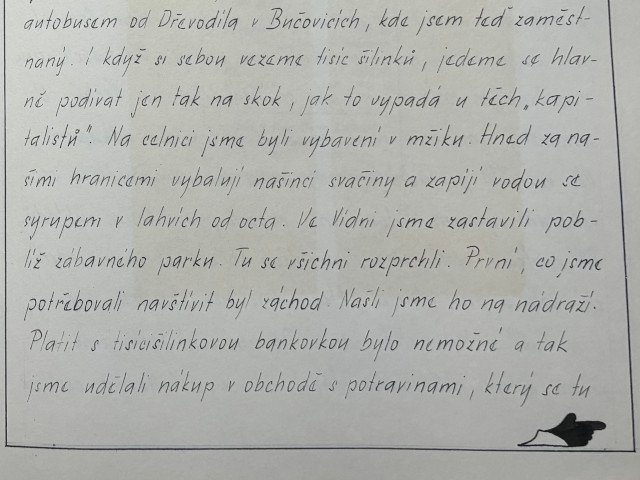 autobusem od Dřevodila v Bučovicích, kde jsem teď zaměst-
naný. I když si sebou vezeme tisíc šilinků, jedeme se hlav-
ně podívat jen tak na skok, jak to vypadá u těch „kapi-
talistů". Na celnici jsme byli vybavení v mžiku. Hned za na-
šimi hranicemi vybalují našinci svačiny a zapíjí vodou se
syrupem v lahvích od octa. Ve Vídni jsme zastavili pob-
líž zábavného parku. Tu se všichni rozprchli. První, co jsme
potřebovali navštívit byl záchod. Našli jsme ho na nádraží.
Platit s tisícišilinkovou bankovkou bylo nemožné a tak
jsme udělali nákup v obchodě s potravinami, který se tu